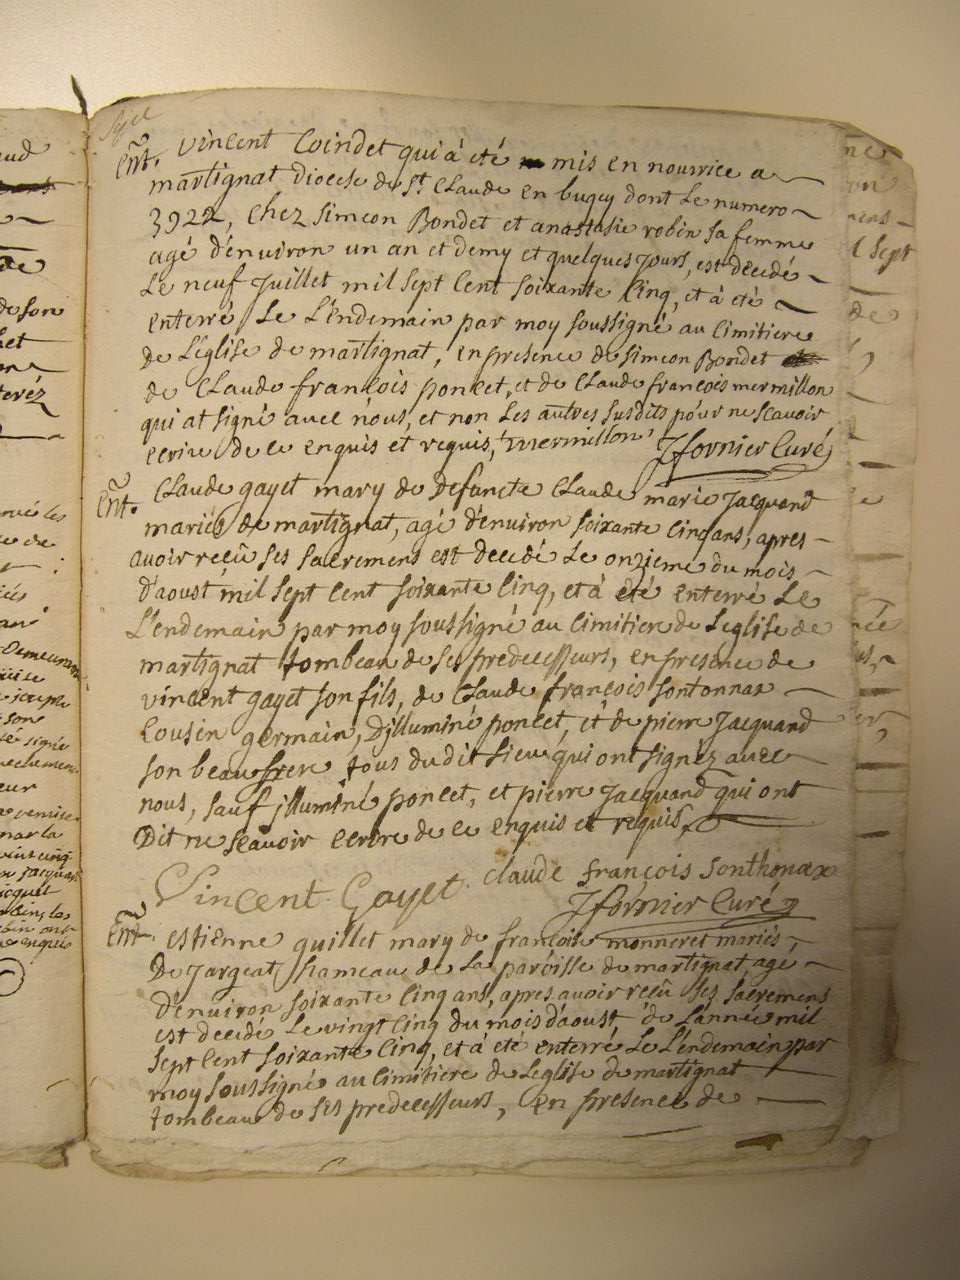 Ent. vincent Coindet qui à eté mis en nourrice a
martignat diocese de St. Claude en bugey dont le numero
3922, chez simeon Bondet et anastasie robin sa femme
agé d'environ un an et demy et quelques jours, est decedé
Le neuf Juillet mil sept cent soixante cinq, et à eté
enterré Le L'endemain par moy soussigné au cimitiere
de L'eglise de martignat, en presence de simeon Bondet
de Claude françois poncet, et de Claude françois mermillon
qui at signé avec nous, et non Les autres susdits pour ne scavoir
ecrire de ce enquis et requis, mermillon Jfornier Curé
Ent. Claude gayet mary de defuncte Claude marie Jacquand
mariés de martignat, agé d'environ soixante cinq ans, apres
avoir reçû ses sacremens est decedé Le onzieme du mois
d'aoust mil sept cent soixante cinq, et à eté enterré Le
L'endemain par moy soussigné au cimitiere de L'eglise de
martignat tombeau de ses predecesseurs, en presence de
vincent gayet son fils, de Claude françois sontonnax
Cousin germain, D'jlluminé poncet, et de pierre Jacquand
son beau frere tous du dit Lieu qui ont signez avec
nous, sauf jlluminé poncet, et pierre Jacquand qui ont
Dit ne scavoir ecrire de ce enquis et requis
Claude françois Sonthonax
Vincent Gayet Jfornier Curé
Ent. estienne quillet mary de françoise monneret mariés,
De Jargeat hameau de La paroisse de martignat, agé
d'environ soixante cinq ans, apres avoir reçû ses sacremens
est decedé Le vingt cinq du mois d'aoust de L'année mil
sept cent soixante cinq, et à eté enterré Le L'endemain par
moy soussigné au cimitiere de L'eglise de martignat
tombeau de ses predecesseurs, en presence de